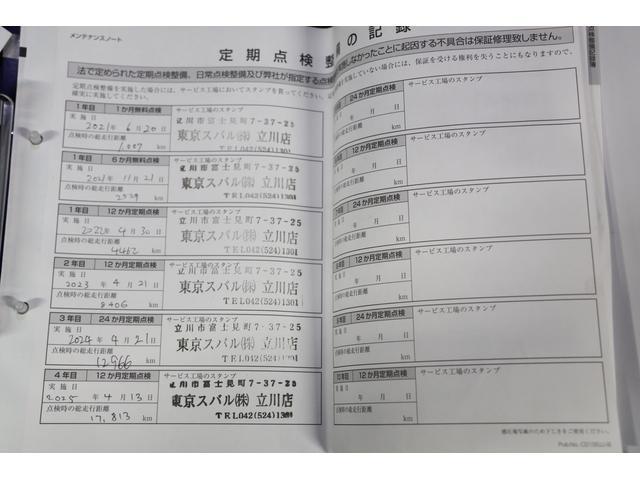 メンテナンスノート
定期点検整
備の記録
法で定められた定期点検整備、日常点検整備及び弊社が指定する点検
定期点検整備を実施した場合には、サービス工場においてスタンプを貰ってください。
確実に実施してください。
1年目 1か月無料点検 サービス工場のスタンプ
実施日
2021年 6月 20日
点検時の総走行距離
1,007 km
立川市富士見町7-37-25
東京スバル㈱ 立川店
TEL042(524)1301
1年目 6か月無料点検 サービス工場のスタンプ
実施日
2021年 11月 21日
点検時の総走行距離
km
立川市富士見町7-37-25
東京スバル㈱ 立川店
TEL042(524)1301
1年目 12か月定期点検 サービス工場のスタンプ
実施日
2022年 4月 30日
点検時の総走行距離
4,462 km
立川市富士見町7-37-25
東京スバル㈱ 立川店
TEL042(524)1301
2年目 12か月定期点検 サービス工場のスタンプ
実施日
2023年 4月 21日
点検時の総走行距離
8406 km
立川市富士見町7-37-25
東京スバル㈱ 立川店
TEL042(524)1301
3年目 24か月定期点検 サービス工場のスタンプ
実施日
2024年 4月 21日
点検時の総走行距離
12,966 km
立川市富士見町7-37-25
東京スバル㈱ 立川店
TEL042(524)1301
4年目 12か月定期点検 サービス工場のスタンプ
実施日
2025年 4月 13日
点検時の総走行距離
17,813 km
立川市富士見町7-37-25
東京スバル㈱ 立川店
TEL042(524)1301
しなかったことに起因する不具合は保証修理致しません。
実施していない場合には、保証を受ける権利を失うことにもなりますので、
24か月定期点検 サービス工場のスタンプ
年 月 日
km
12か月定期点検 サービス工場のスタンプ
年 月 日
km
24か月定期点検 サービス工場のスタンプ
年 月 日
km
12か月定期点検 サービス工場のスタンプ
年 月 日
km
24か月定期点検 サービス工場のスタンプ
年 月 日
km
10年目 12か月定期点検 サービス工場のスタンプ
年 月 日
km
点検整備記録簿
感圧複写紙のため下じきをご使用ください。